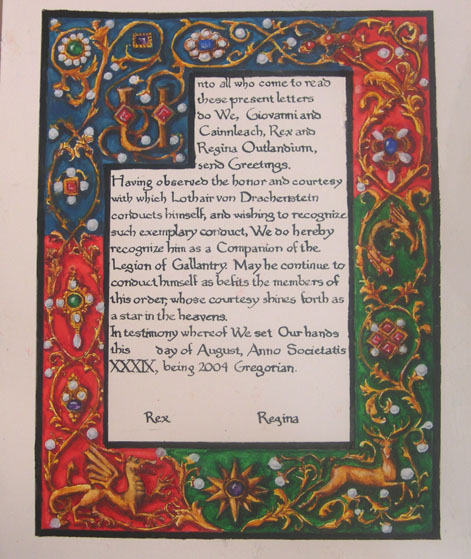 Unto all who come to read
these present letters
do We, Giovanni and
Cainnleach, Rex and
Regina Outlandium,
send Greetings.
Having observed the honor and courtesy
with which Lothair von Drachenstein
conducts himself, and wishing to recognize
such exemplary conduct, We do hereby
recognize him as a Companion of the
Legion of Gallantry. May he continue to
conduct himself as befits the members of
this order, whose courtesy shines forth as
a star in the heavens.
In testimony whereof We set Our hands
this day of August, Anno Societatis
XXXIX, being 2004 Gregorian.
Rex Regina